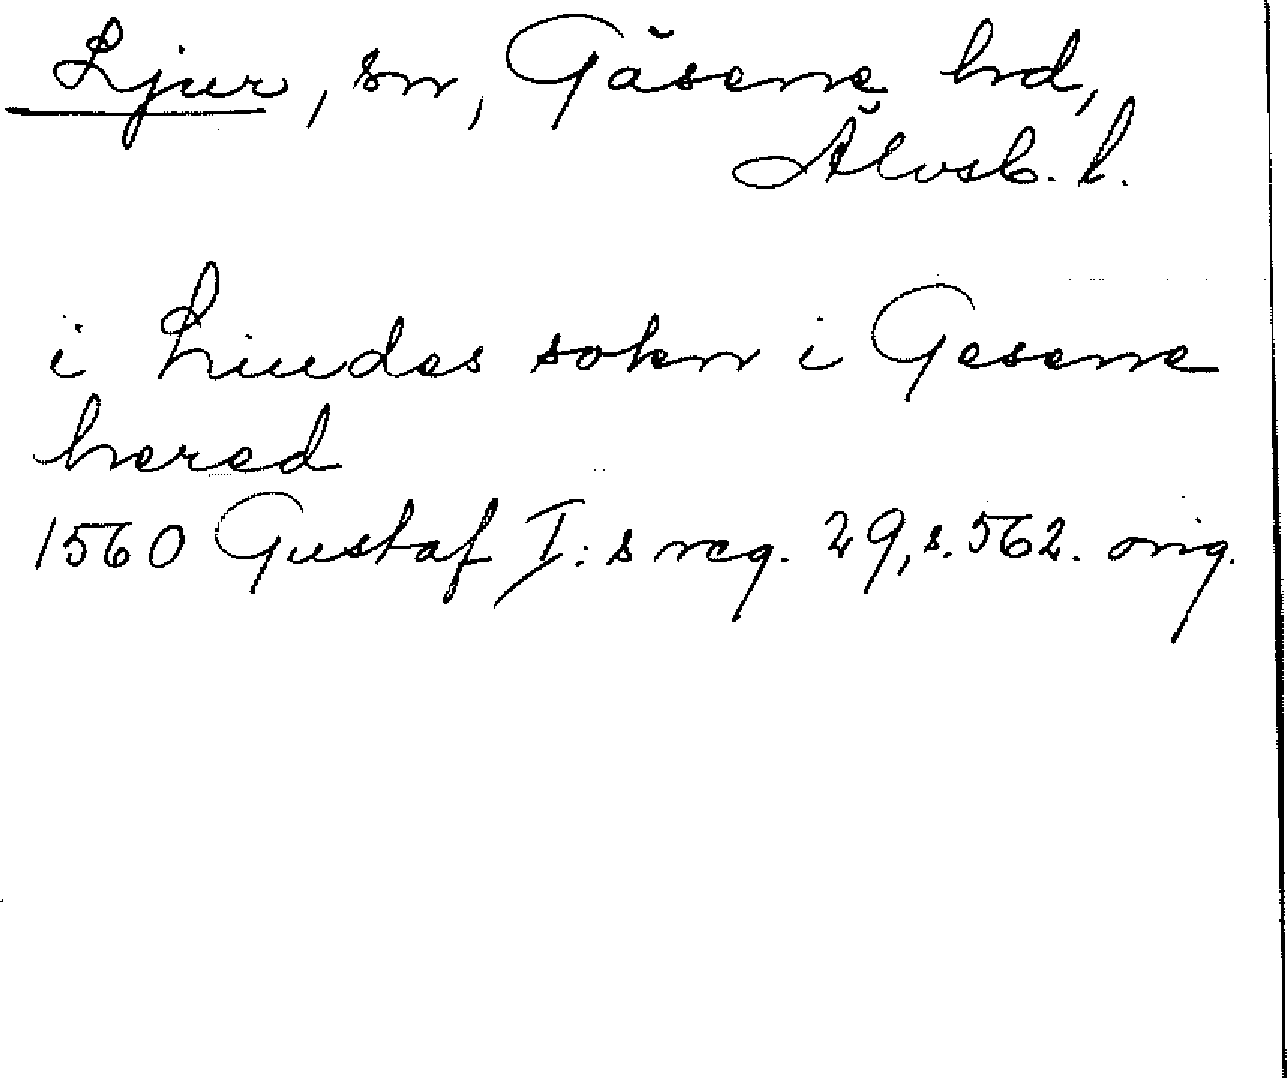 Ljur, sn, Gäsene hd,
Älvsb. l.
i Liudes sokn i Gesene
hered
1560 Gustaf I:s reg. 29, s. 562. orig.